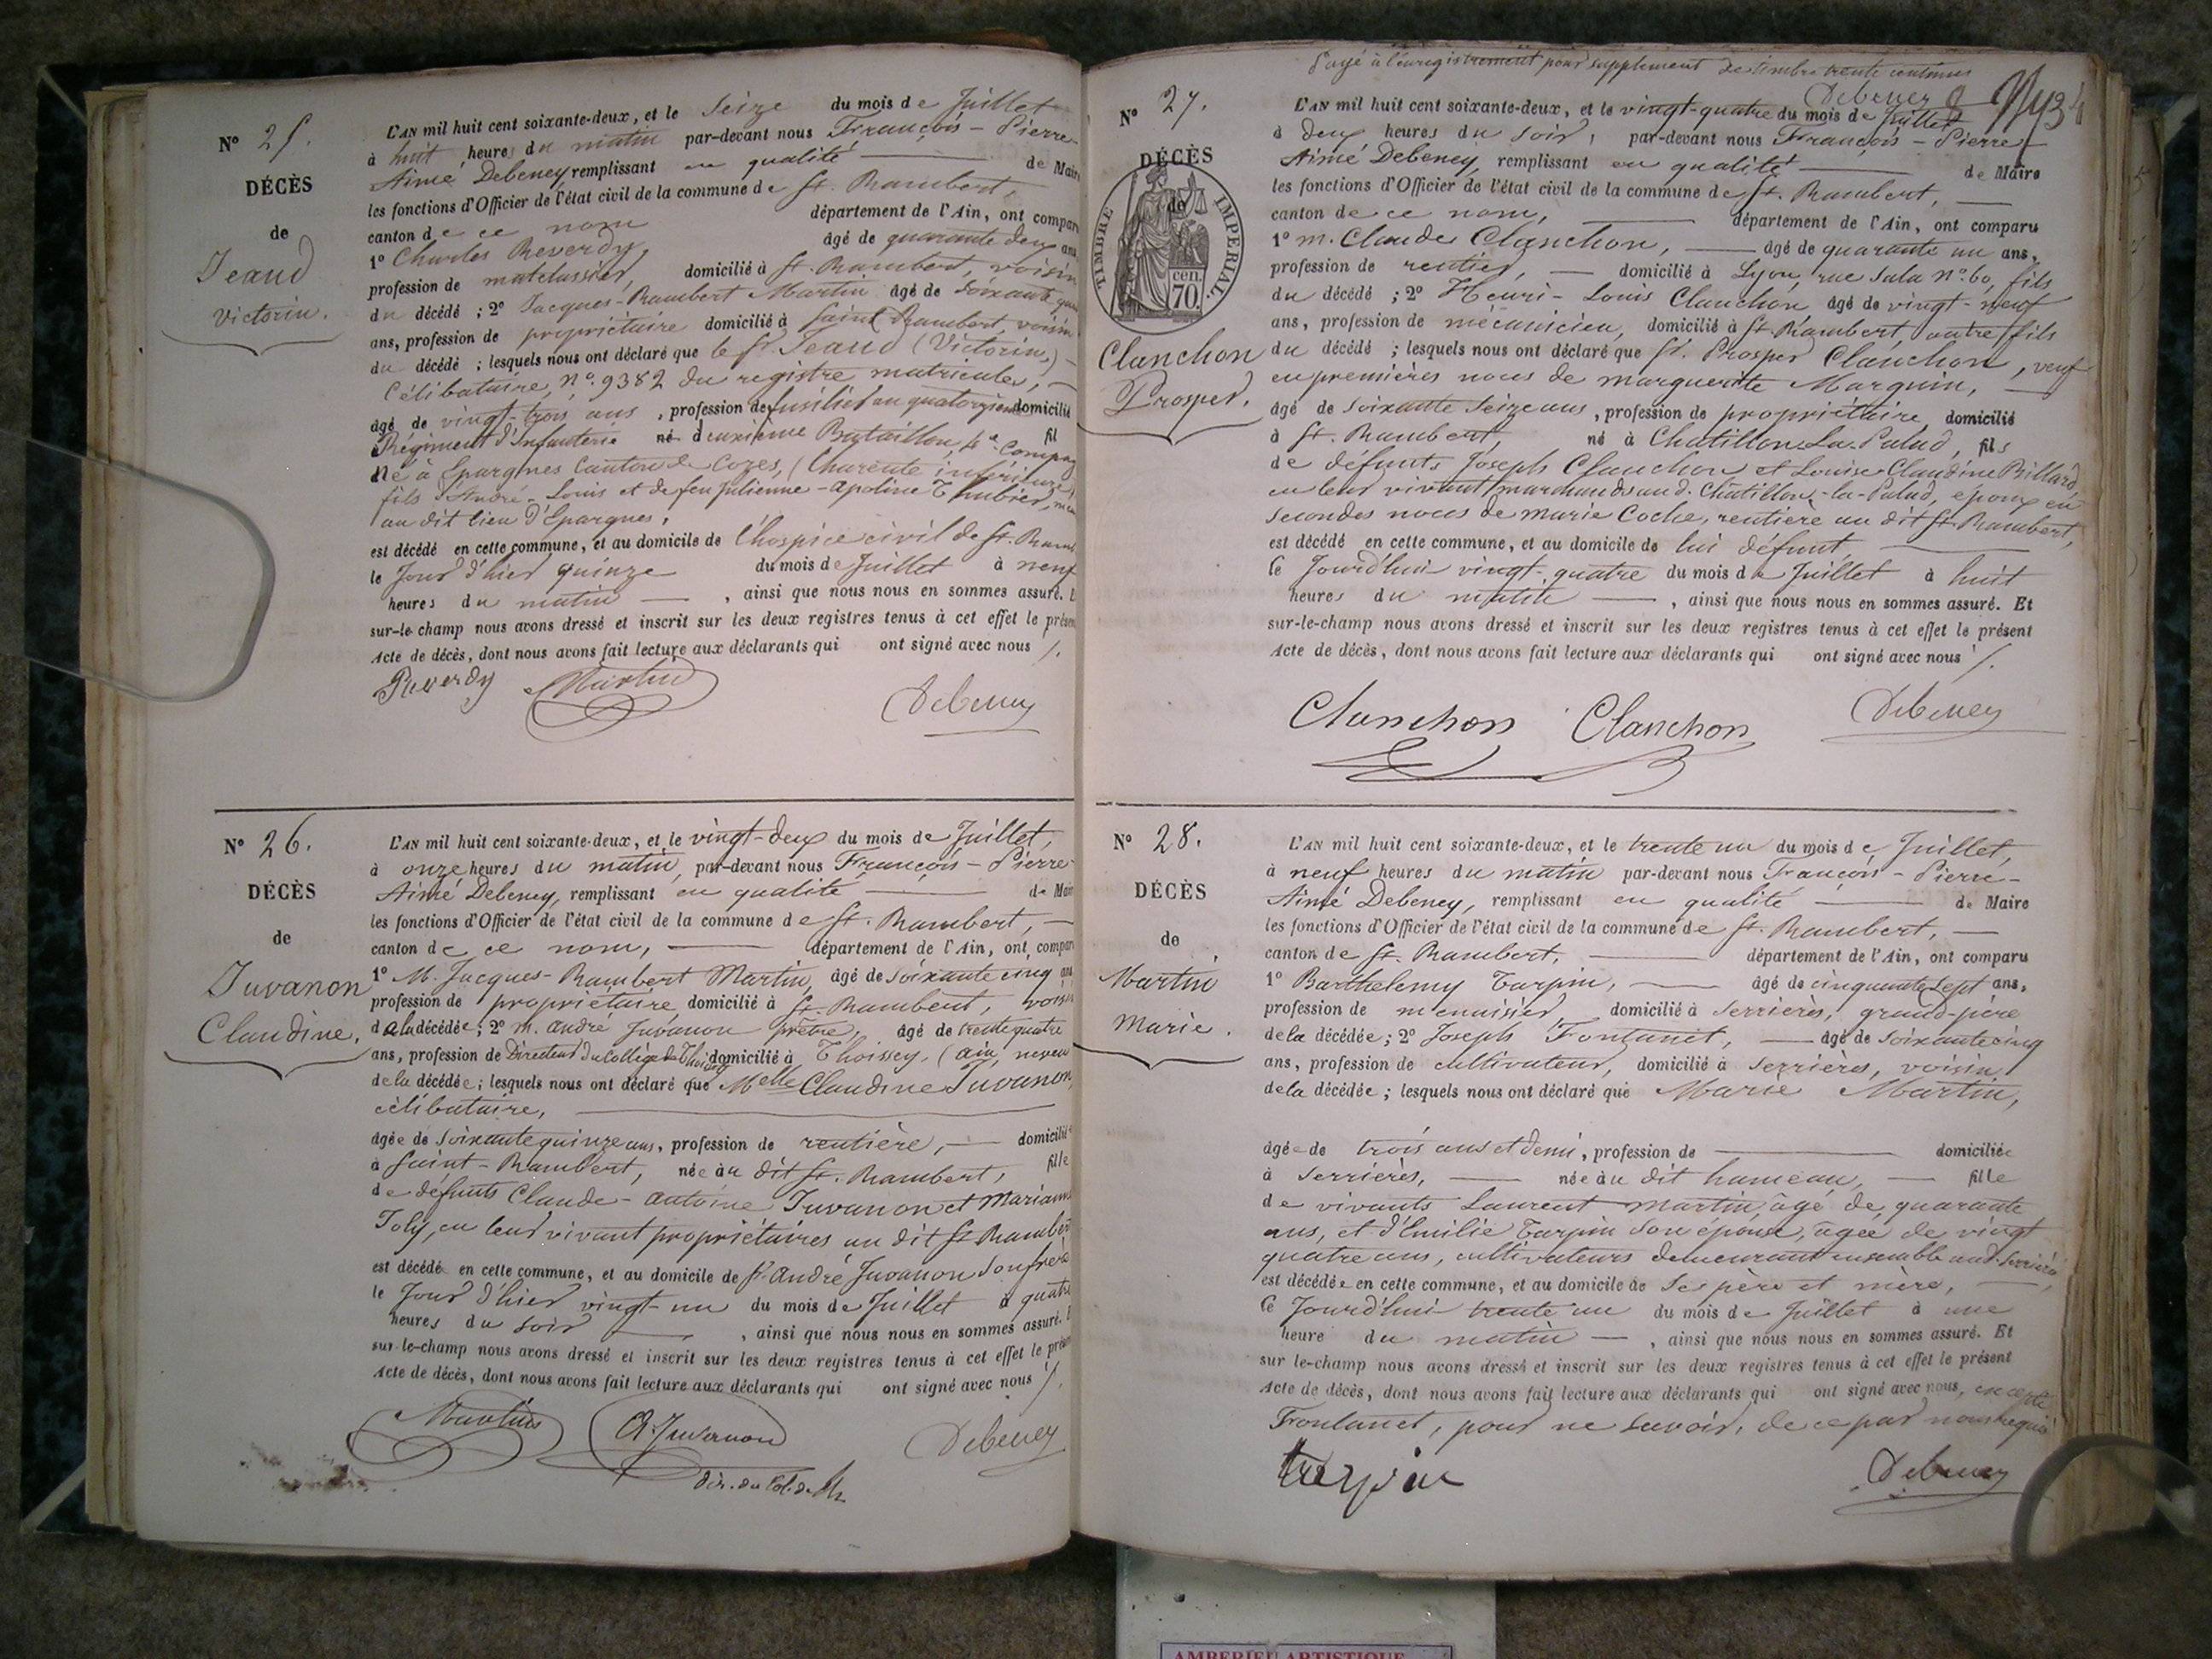 N° 25.
DÉCÈS
de
Jeaud
Victorin.
L'AN mil huit cent soixante-deux, et le Seize du mois de Juillet
à huit heures du matin par-devant nous François-Pierre-
Aimé Debeney remplissant en qualité de Maire
les fonctions d'Officier de l'état civil de la commune de St. Rambert,
canton de ce nom département de l'Ain, ont compar
1° Charles Reverdy, âgé de quarante deux ans
profession de matelassier, domicilié à St. Rambert, voisin
du décédé ; 2° Jacques-Rambert Martin âgé de Soixante
ans, profession de propriétaire domicilié à Saint Rambert, voisin
du décédé ; lesquels nous ont déclaré que le Sr. Jeaud (Victorin,)
Célibataire, N°. 9382 du registre matricules,
âgé de vingt-trois ans, profession de fusilier au quatorzième domicilié
Régiment d'Infanterie né deuxième Bataillon, 4e Compag
né à Epargnes Canton de Cozes, (Charente inférieure)
fils d'André-Louis et de feu Julienne-Apoline
au dit lieu d'Epargnes,
est décédé en cette commune, et au domicile de l'hospice civil de St. Ramb
le Jour d'hier quinze du mois de Juillet à neuf
heures du matin, ainsi que nous nous en sommes assuré. E
sur-le-champ nous avons dressé et inscrit sur les deux registres tenus à cet effet le présen
Acte de décès, dont nous avons fait lecture aux déclarants qui ont signé avec nous /.
Reverdy Martin Debeney
N° 26.
DÉCÈS
de
Juvanon
Claudine.
L'AN mil huit cent soixante-deux, et le vingt-deux du mois de Juillet,
à onze heures du matin, par-devant nous François-Pierre-
Aimé Debeney, remplissant en qualité de Mair
les fonctions d'Officier de l'état civil de la commune de St. Rambert,
canton de ce nom, département de l'Ain, ont compar
1° M. Jacques-Rambert Martin, âgé de soixante cinq ans
profession de propriétaire, domicilié à St. Rambert, voisin
de la décédée; 2° M. André Juvanon prêtre, âgé de trente quatre
ans, profession de Directeur du Collège de Thoissey domicilié à Thoissey, (Ain, neveu
de la décédée; lesquels nous ont déclaré que Melle Claudine Juvanon,
célibataire,
âgée de Soixante quinze ans, profession de rentière, domiciliée
à Saint-Rambert, née au dit St. Rambert, fille
de défunts Claude-Antoine Juvanon et Marianne
Joly, en leur vivant propriétaires au dit St Rambert
est décédé en cette commune, et au domicile de Sr. André Juvanon son frère
le Jour d'hier vingt-un du mois de Juillet à quatre
heures du soir, ainsi que nous nous en sommes assuré. E
sur-le-champ nous avons dressé et inscrit sur les deux registres tenus à cet effet le présen
Acte de décès, dont nous avons fait lecture aux déclarants qui ont signé avec nous /.
Martin A. Juvanon Debeney
dir. du Col. de
Payé à l'enregistrement pour supplément de timbre trente centimes
Debeney
N° 27.
DÉCÈS
de
TIMBRE IMPERIAL.
70 cen.
Clanchon
Prosper.
L'AN mil huit cent soixante-deux, et le vingt-quatre du mois de Juillet
à deux heures du soir, par-devant nous François-Pierre-
Aimé Debeney, remplissant en qualité de Maire
les fonctions d'Officier de l'état civil de la commune de St. Rambert,
canton de ce nom, département de l'Ain, ont comparu
1° M. Claude Clanchon, âgé de quarante un ans,
profession de rentier, domicilié à Lyon, rue Sala N°. 60, fils
du décédé ; 2° Henri-Louis Clanchon, âgé de vingt-neuf
ans, profession de mécanicien, domicilié à St. Rambert, autre fils
du décédé ; lesquels nous ont déclaré que Sr. Prosper Clanchon, veuf
en premières noces de Marguerite Marguin,
âgé de soixante seize ans, profession de propriétaire, domicilié
à St. Rambert, né à Chatillon-La-Palud, fils
de défunts Joseph Clanchon et Louise-Claudine Billard
en leur vivant marchands aud. Chatillon-la-Palud, époux en
secondes noces de Marie Coche, rentière au dit St. Rambert,
est décédé en cette commune, et au domicile de lui défunt,
le Jourd'hui vingt-quatre du mois de Juillet à huit
heures du matin, ainsi que nous nous en sommes assuré. Et
sur-le-champ nous avons dressé et inscrit sur les deux registres tenus à cet effet le présent
Acte de décès, dont nous avons fait lecture aux déclarants qui ont signé avec nous /.
Clanchon Clanchon Debeney
N° 28.
DÉCÈS
de
Martin
Marie.
L'AN mil huit cent soixante-deux, et le trente un du mois de Juillet,
à neuf heures du matin par-devant nous François-Pierre-
Aimé Debeney, remplissant en qualité de Maire
les fonctions d'Officier de l'état civil de la commune de St. Rambert,
canton de St. Rambert, département de l'Ain, ont comparu
1° Barthelemy Tarpin, âgé de cinquante sept ans,
profession de menuisier, domicilié à Serrières, grand-père
de la décédée; 2° Joseph Fontanet, âgé de soixante cinq
ans, profession de cultivateur, domicilié à Serrières, voisin
de la décédée ; lesquels nous ont déclaré que Marie Martin,
âgée de trois ans et demi, profession de domiciliée
à Serrières, née au dit hameau, fille
de vivants Laurent Martin, âgé de quarante
ans, et d'Emilie Tarpin son épouse, âgée de vingt
quatre ans, cultivateurs demeurant ensemble aud. Serrières
est décédée en cette commune, et au domicile de Ses père et mère,
le Jourd'hui trente un du mois de Juillet à une
heure du matin, ainsi que nous nous en sommes assuré. Et
sur-le-champ nous avons dressé et inscrit sur les deux registres tenus à cet effet le présent
Acte de décès, dont nous avons fait lecture aux déclarants qui ont signé avec nous, excepté
Frontanet, pour ne savoir, de ce par nous requis
Debeney
AMBERIEU ARTISTIQUE